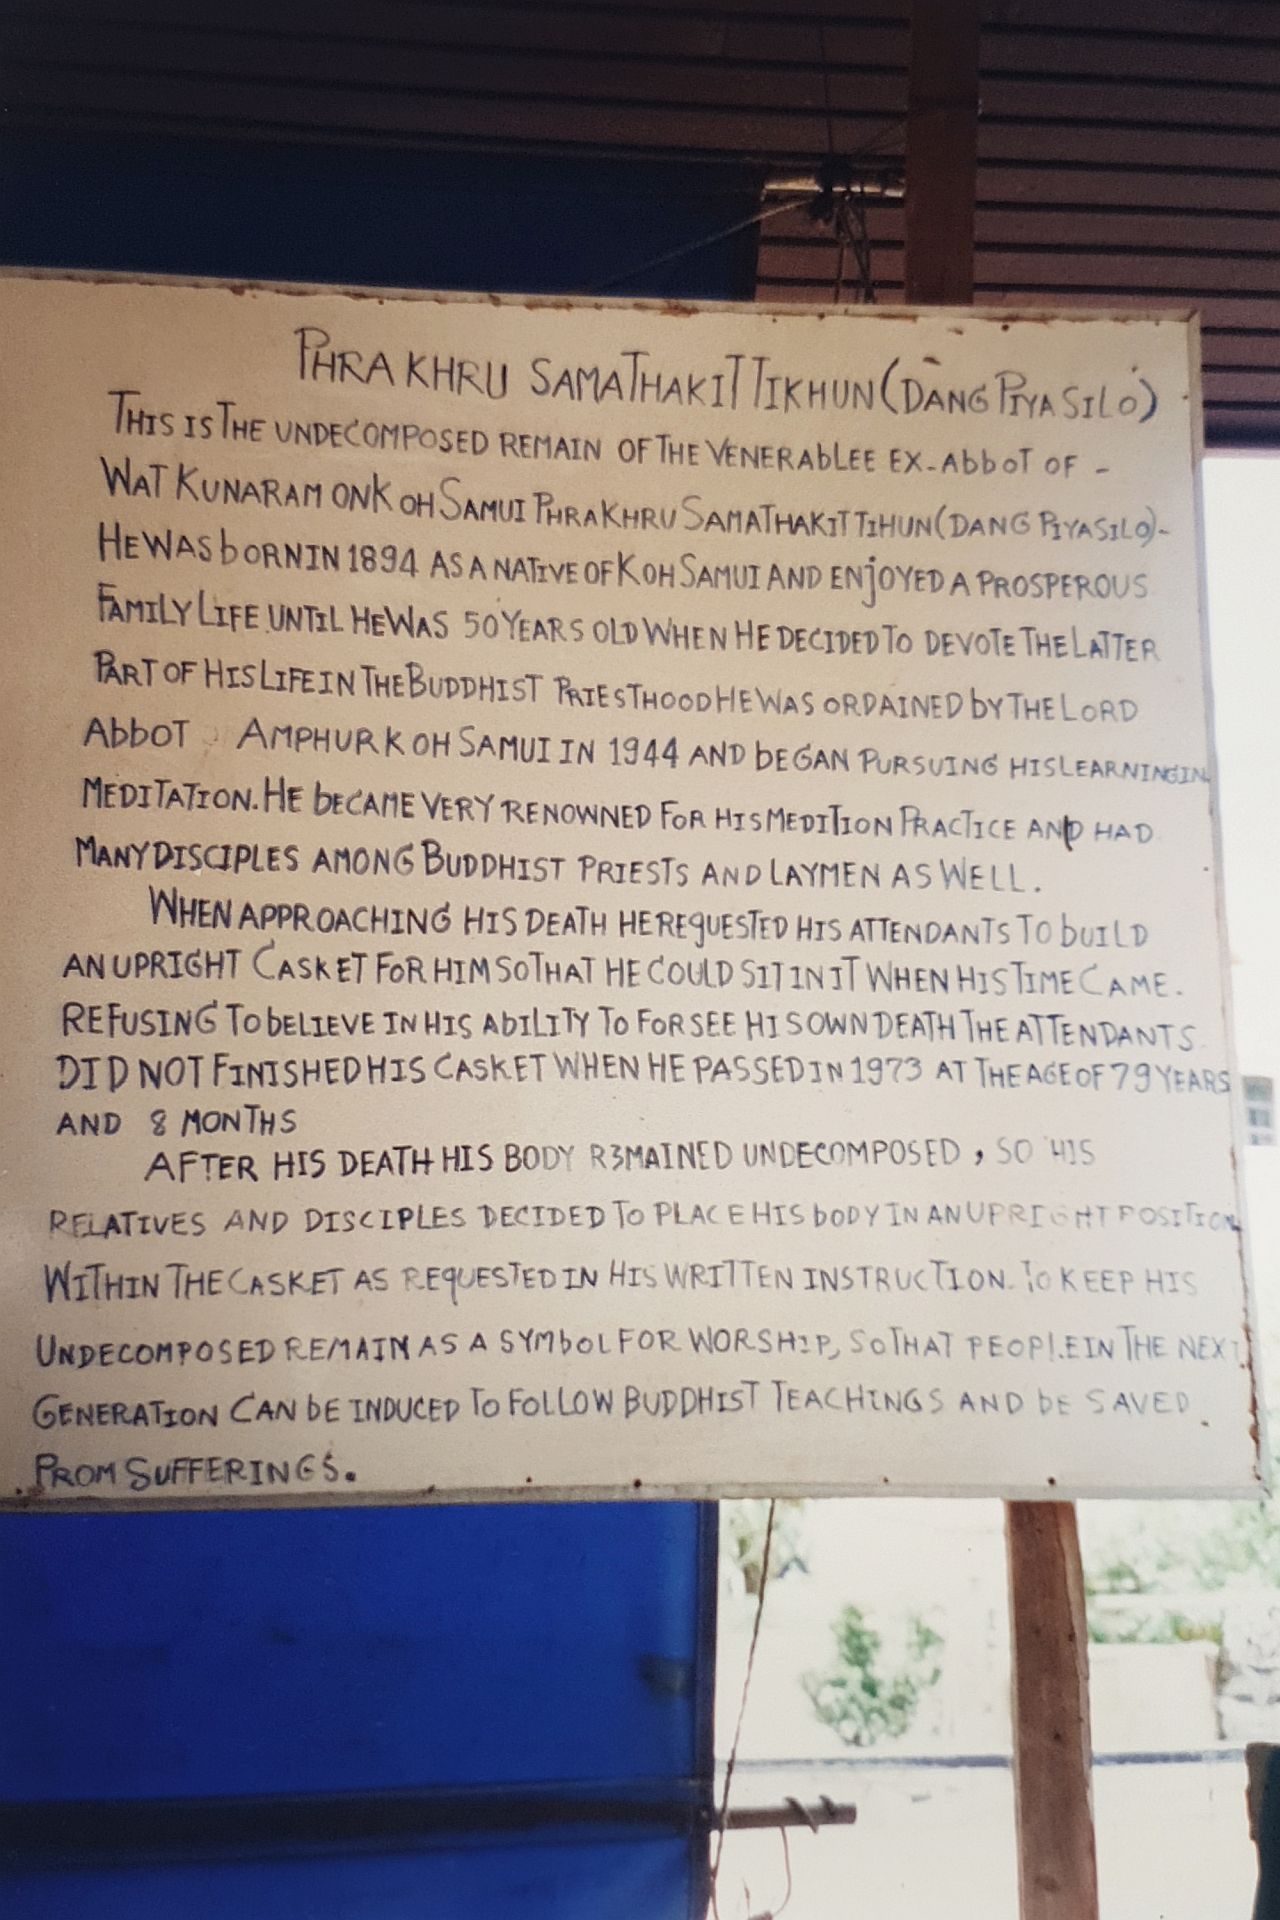 PHRA KHRU SAMATHAKITTIKHUN (DĀNG PIYASILO)
THIS IS THE UNDECOMPOSED REMAIN OF THE VENERABLEE EX-ABBOT OF -
WAT KUNARAM ON KOH SAMUI PHRA KHRU SAMATHAKITTIHUN (DANG PIYASILO)-
HE WAS BORN IN 1894 AS A NATIVE OF KOH SAMUI AND ENJOYED A PROSPEROUS
FAMILY LIFE UNTIL HE WAS 50 YEARS OLD WHEN HE DECIDED TO DEVOTE THE LATTER
PART OF HIS LIFE IN THE BUDDHIST PRIESTHOOD HE WAS ORDAINED BY THE LORD
ABBOT AMPHUR KOH SAMUI IN 1944 AND BEGAN PURSUING HIS LEARNING IN
MEDITATION. HE BECAME VERY RENOWNED FOR HIS MEDITION PRACTICE AND HAD
MANY DISCIPLES AMONG BUDDHIST PRIESTS AND LAYMEN AS WELL.
WHEN APPROACHING HIS DEATH HE REQUESTED HIS ATTENDANTS TO BUILD
AN UPRIGHT CASKET FOR HIM SO THAT HE COULD SIT IN IT WHEN HIS TIME CAME.
REFUSING TO BELIEVE IN HIS ABILITY TO FORSEE HIS OWN DEATH THE ATTENDANTS
DID NOT FINISHED HIS CASKET WHEN HE PASSED IN 1973 AT THE AGE OF 79 YEARS
AND 8 MONTHS
AFTER HIS DEATH HIS BODY R3MAINED UNDECOMPOSED, SO HIS
RELATIVES AND DISCIPLES DECIDED TO PLACE HIS BODY IN AN UPRIGHT POSITION
WITHIN THE CASKET AS REQUESTED IN HIS WRITTEN INSTRUCTION. TO KEEP HIS
UNDECOMPOSED REMAIN AS A SYMBOL FOR WORSHIP, SO THAT PEOPLE IN THE NEXT
GENERATION CAN BE INDUCED TO FOLLOW BUDDHIST TEACHINGS AND BE SAVED
PROM SUFFERINGS.